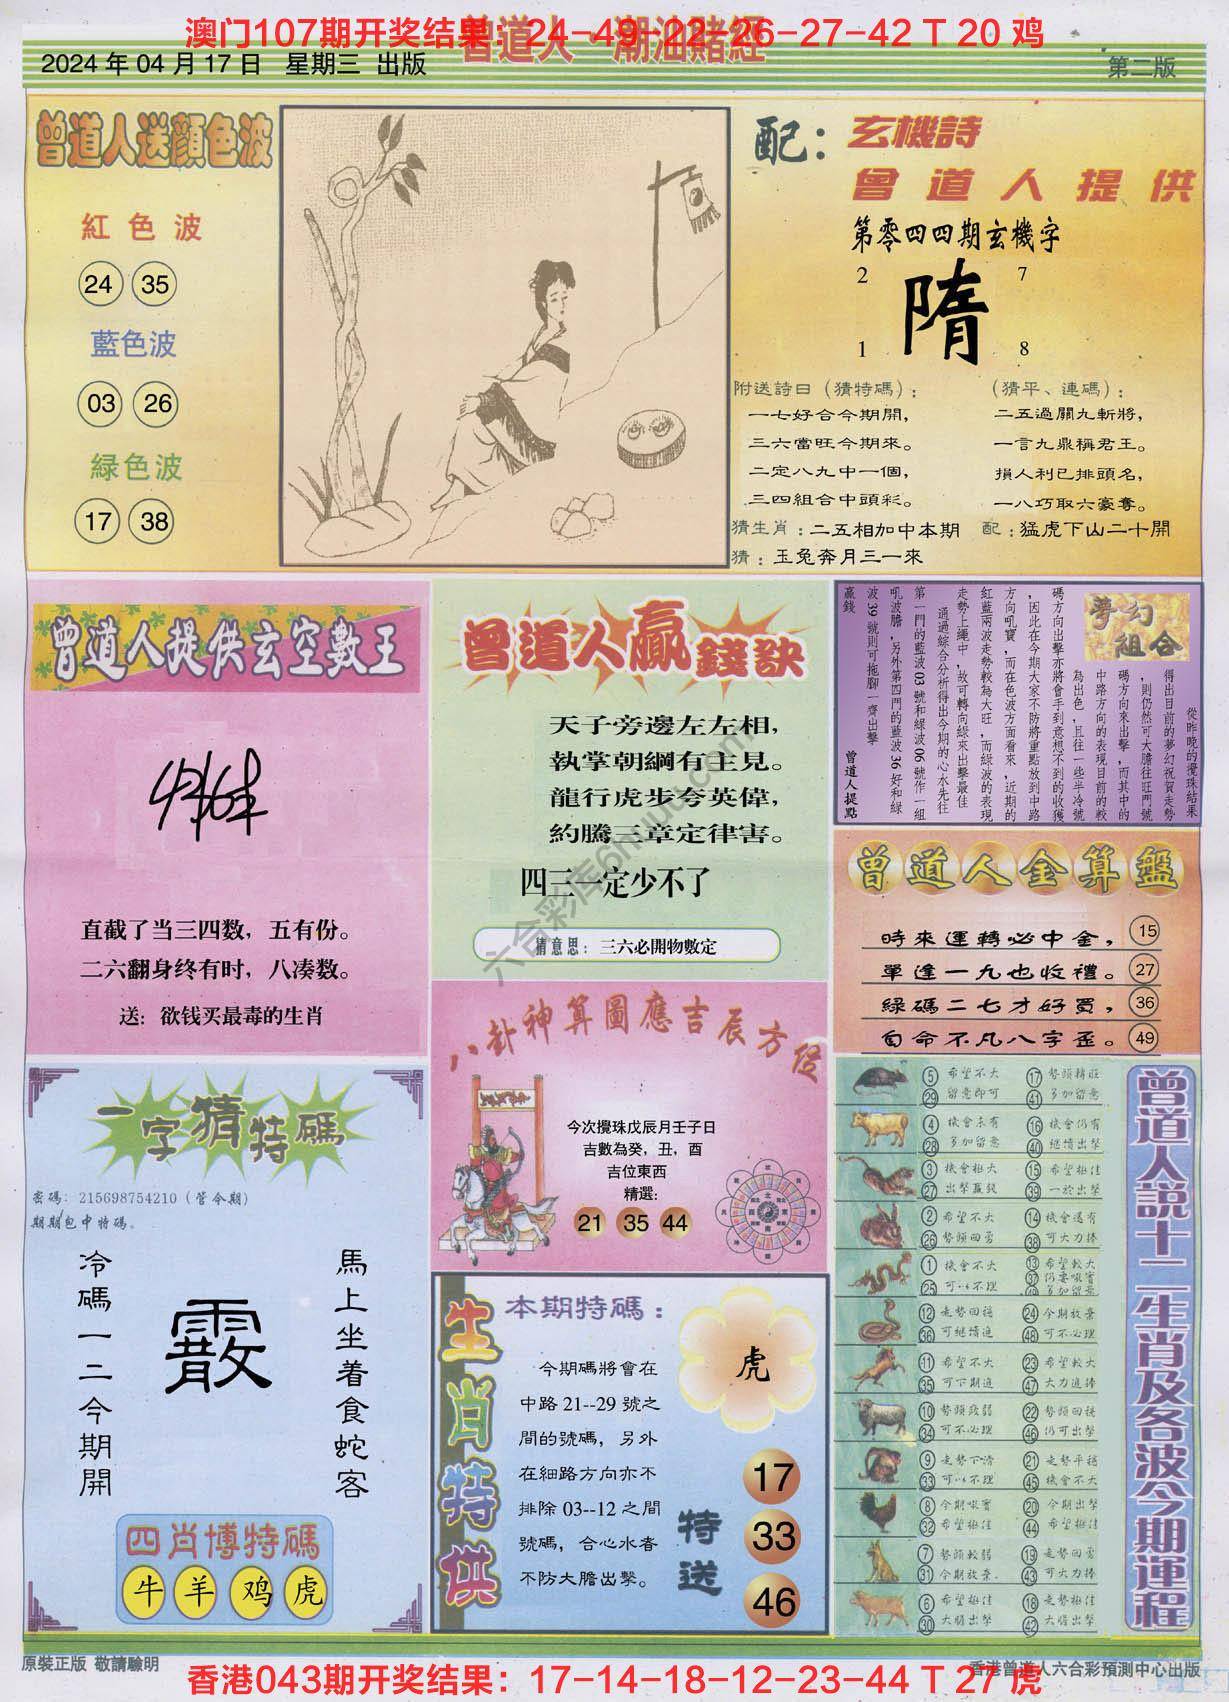 澳门107期开奖结果：24-49-22-26-27-42 T 20 鸡
曾道人·潮汕賭經
2024 年 04 月 17 日 星期三 出版
第二版
曾道人送顏色波
紅色波
24 35
藍色波
03 26
緑色波
17 38
配：玄機詩
曾道人提供
第零四四期玄機字
2 7
隋
1 8
附送詩曰（猜特碼）：
一七好合今期開，
三六當旺今期來。
二定八九中一個，
三四組合中頭彩。
（猜平、連碼）：
二五過關九斬將，
一言九鼎稱君王。
損人利已排頭名，
一八巧取六豪奪。
猜生肖：二五相加中本期 配：猛虎下山二十開
猜：玉兔奔月三一來
曾道人提供玄空數王
直截了当三四数，五有份。
二六翻身终有时，八凑数。
送：欲钱买最毒的生肖
曾道人贏錢訣
天子旁邊左左相，
執掌朝綱有主見。
龍行虎步夸英偉，
約騰三章定律害。
四三一定少不了
猜意思：三六必開物數定
夢幻組合
從昨晚的攪珠結果
得出目前的夢幻祝賀走勢
，則仍然可大膽往旺門號
碼方向來出擊，而其中的
中路方向的表現目前的較
為出色，且往一些半冷號
碼方向出擊亦將會手到意想不到的收獲
，因此在今期大家不防將重點放到中路
方向吼寶，而在色波方面看來，近期的
紅藍兩波走勢較為大旺，而綠波的表現
走勢上繩中，故可轉向綠來出擊最佳
通過綜合分析得出今期的心水先往
第一門的藍波 03 號和綠波 06 號作一組
吼波膽，另外第四門的藍波 36 好和綠
波 39 號則可拖腳一齊出擊
贏錢
曾道人提點
曾道人金算盤
時來運轉必中金， 15
單逢一九也收禮。 27
綠碼二七才好買， 36
自命不凡八字歪。 49
八卦神算圖應吉辰方位
今次攪珠戊辰月壬子日
吉數為癸，丑，酉
吉位東西
精選：
21 35 44
一字猜特碼
密碼：215698754210（管今期）
期期包中特碼。
冷碼一二今期開
馬上坐着食蛇客
四肖博特碼
牛 羊 鸡 虎
生肖特供
本期特碼：
虎
今期碼將會在
中路 21--29 號之
間的號碼，另外
在細路方向亦不
排除 03--12 之間
號碼，合心水者
不防大膽出擊。
特送
17
33
46
曾道人説十二生肖及各波今期運程
5 希望不大 17 勢頭精旺
29 留意即可 41 多加留意
4 機會未有 16 機會仍有
28 多加留意 40 繼續出擊
3 機會極大 15 希望極佳
27 出擊贏錢 39 一於出擊
2 希望不大 14 機會還有
26 勢頭回勇 38 可大力捧
1 機會不大 13 希望較大
25 可以不理 37 仍要吼實
多加留意
12 走勢回穩 24 今期放棄
36 可繼續追 48 可不必理
11 希望不大 23 希望較大
35 可下期追 47 大力追捧
10 勢頭致弱 22 勢頭回穩
34 可不必理 46 仍可出擊
9 走勢下滑 21 走勢平穩
33 可以不理 45 機會不大
8 今期吼實 20 今期出擊
32 希望極佳 44 希望極佳
7 勢頭較弱 19 走勢回勇
31 今期放棄. 43 可大力捧
6 希望極佳 18 走勢極佳
30 大膽出擊 42 大膽出擊
六合彩库6huu.com
原裝正版 敬請驗明
香港曾道人六合彩預測中心出版
香港043期开奖结果：17-14-18-12-23-44 T 27 虎